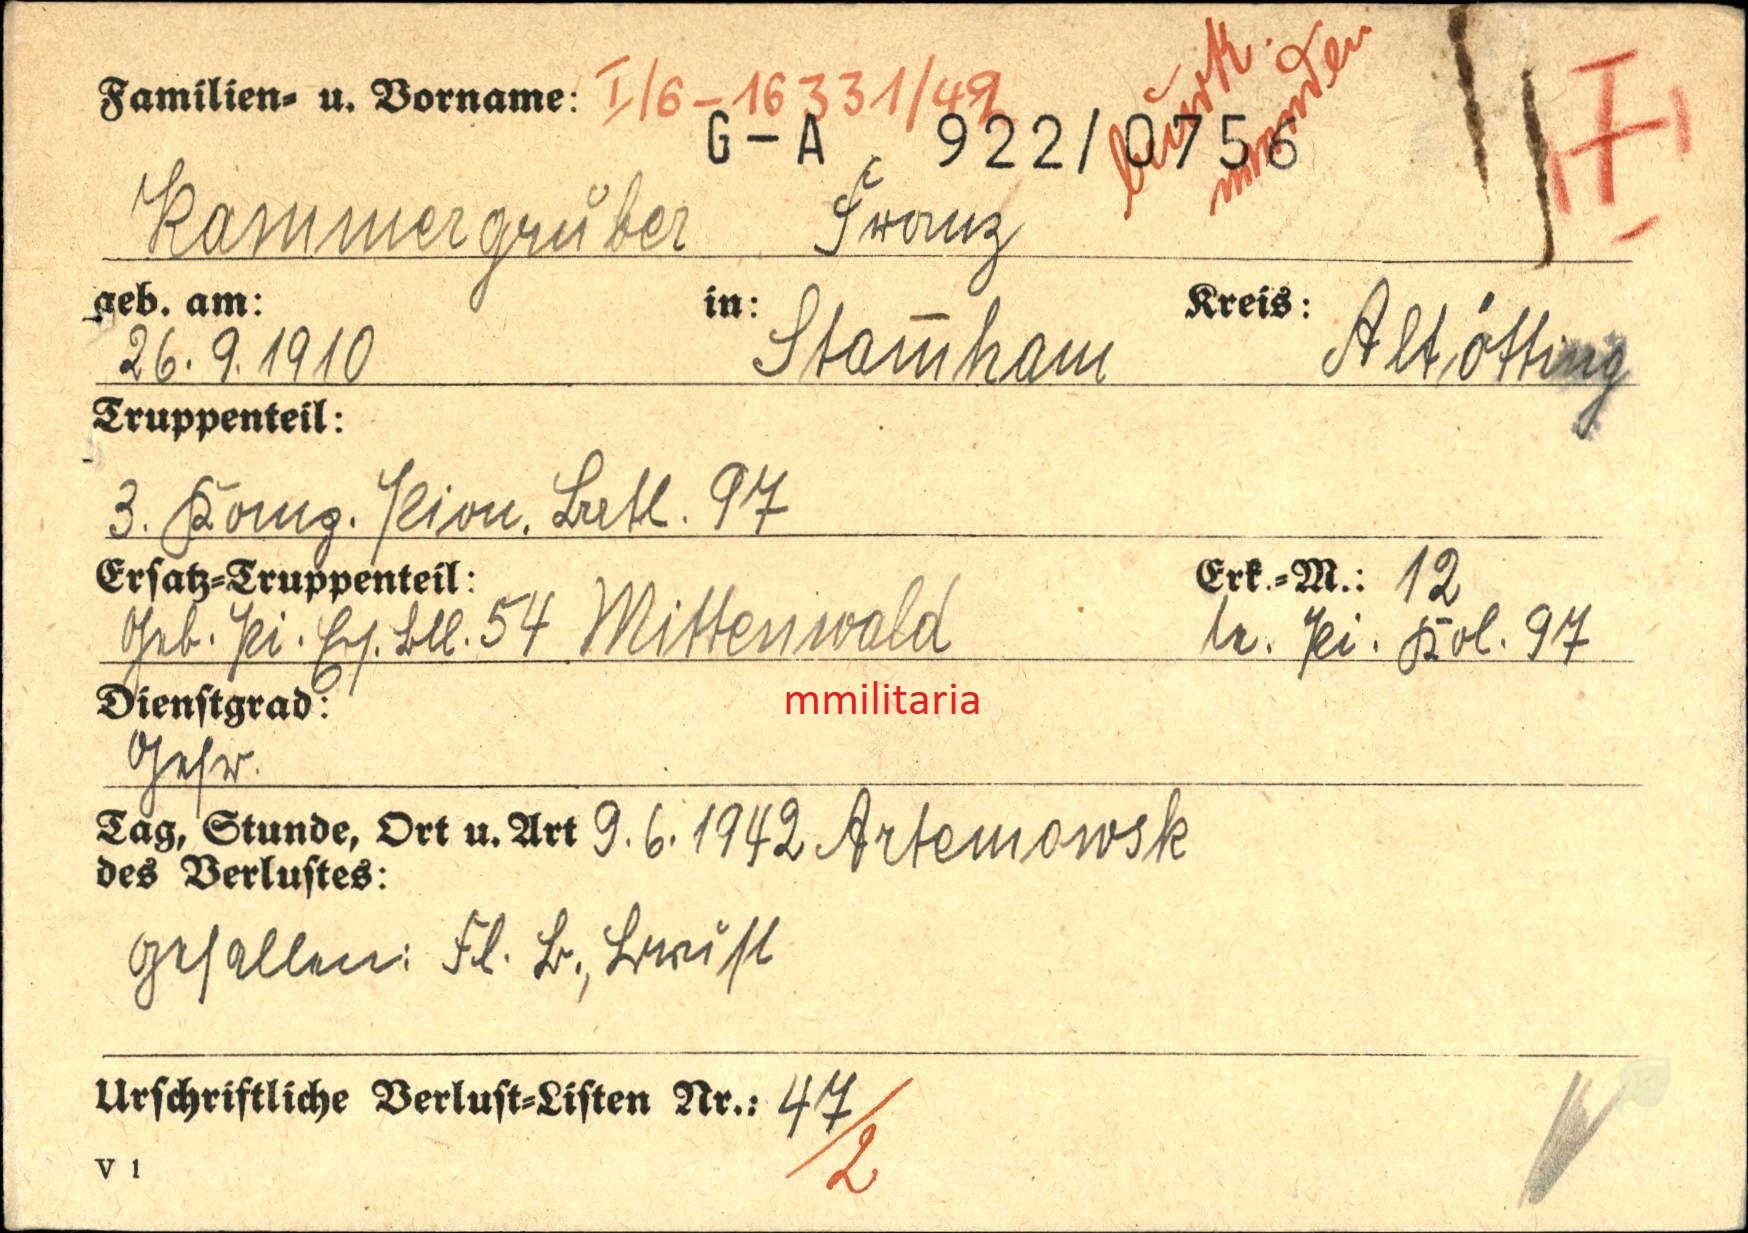 Familien- u. Vorname: I/6-16331/49
G-A 922/0756
Kammergruber Franz
geb. am: in: Kreis:
26.9.1910 Stam̅ham Altötting
Truppenteil:
3. Komp. Pion. Batl. 97
Ersatz-Truppenteil: Erk.-M.: 12
Geb. Pi. Ers. Btl. 54 Mittenwald le. Pi. Kol. 97
mmilitaria
Dienstgrad:
Gefr.
Tag, Stunde, Ort u. Art 9.6.1942 Artemowsk
des Verlustes:
gefallen: Fl. B., Brust
Urschriftliche Verlust-Listen Nr.: 47/2
V 1